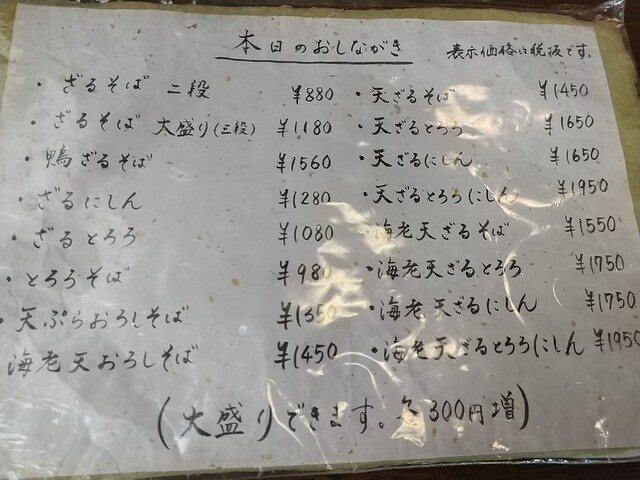 本日のおしながき
表示価格は税抜です。
・ざるそば 二段 ¥880
・ざるそば 大盛り(三段) ¥1180
・鴨ざるそば ¥1560
・ざるにしん ¥1280
・ざるとろろ ¥1080
・とろろそば ¥980
・天ぷらおろしそば ¥1350
海老天おろしそば ¥1450
・天ざるそば ¥1450
・天ざるとろろ ¥1650
・天ざるにしん ¥1650
・天ざるとろろにしん ¥1950
・海老天ざるそば ¥1550
・海老天ざるとろろ ¥1750
・海老天ざるにしん ¥1750
・海老天ざるとろろにしん ¥1950
(大盛りできます。各300円増)